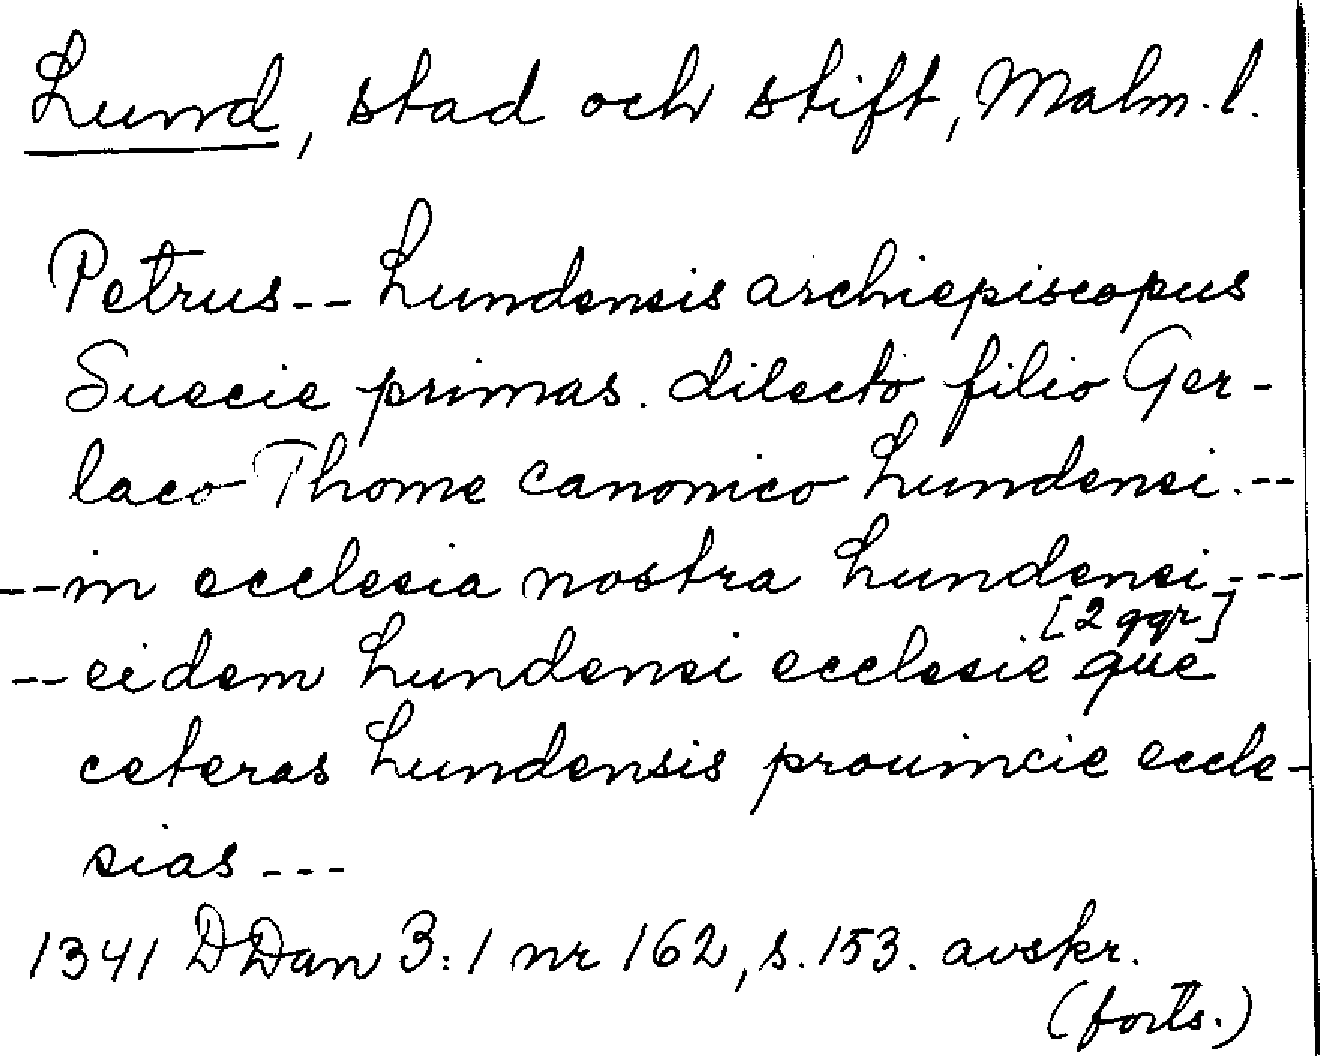 Lund, stad och stift, Malm. l.
Petrus -- Lundensis archiepiscopus
Suecie primas. dilecto filio Ger-
laco Thome canonico Lundensi. --
-- in ecclesia nostra Lundensi. ---
[2 ggr]
-- eidem Lundensi ecclesie que
ceteras Lundensis prouincie eccle-
sias ---
1341 DDan 3:1 nr 162, s. 153. avskr.
(forts.)